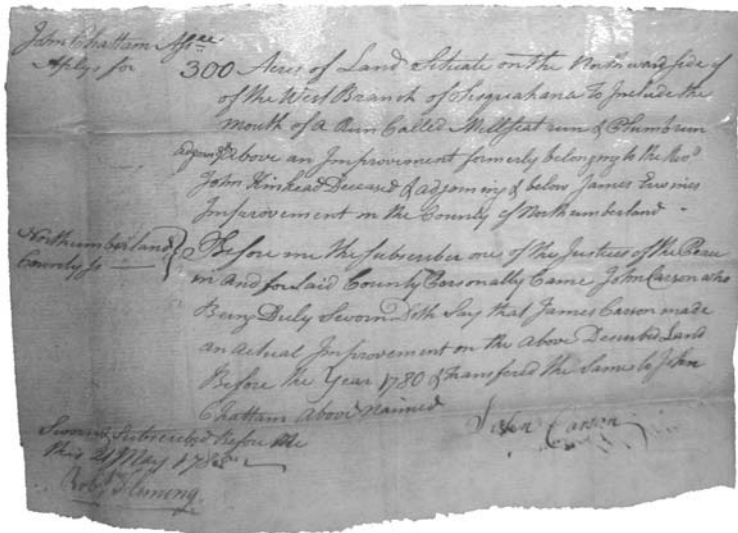 John Chattam Assee
Aplys for 300 Acres of Land Situate on the Northward side of
of the West Branch of Susquahana To Include the
mouth of a Run Called Millseat run & Plumbrun
adjoing & above an Improvement formerly belonging to the Revd
John Kinkead Deceased & adjoining & below James Erwines
Improvement on the County of Northumberland
Northumberland
County ss
Before me the Subscriber one of the Justices of the Peace
in And for Said County Personally Came John Carson who
Being Duly Sworn Doth Say that James Carson made
an Actual Improvement on the Above Described Land
Before the Year 1780 & transfered the Same to John
Chattam Above Named
John Carson
Sworn & Subscribed Before Me
this 21 May
Robt Fleming